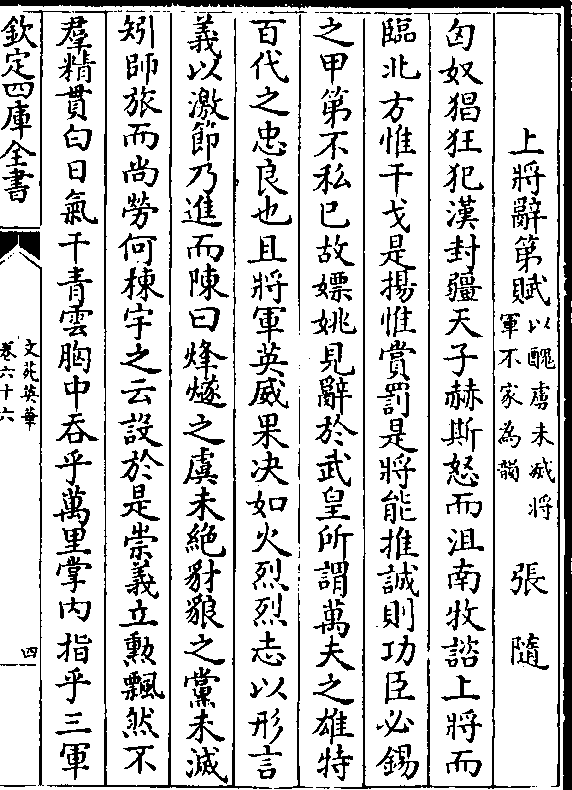 上將辭第賦以醜虜未滅將軍不家為韻 張隨
匈奴猖狂犯漢封疆天子赫斯怒而沮南牧諮上將而
臨北方惟干戈是揚惟賞罰是將能推誠則功臣必錫
之甲第不私已故嫖姚見辭於武皇所謂萬夫之雄特
百代之忠良也且將軍英威果决如火烈烈志以形言
義以激節乃進而陳曰烽燧之虞未絶豺狼之黨未滅
矧師旅而尚勞何棟宇之云設於是崇義立勲飄然不
羣精貫白日氣干青雲胸中吞乎萬里掌内指乎三軍
欽定四庫全書
文苑英華
卷六十六
四